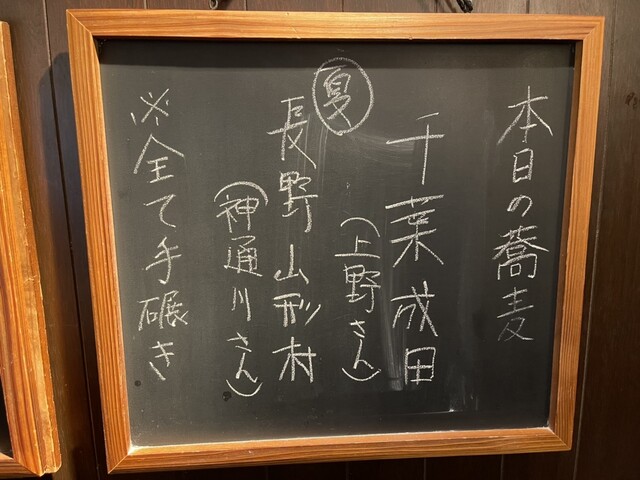 本日の蕎麦
千葉成田
（上野さん）
夏
長野山形村
（神通川さん）
※全て手碾き